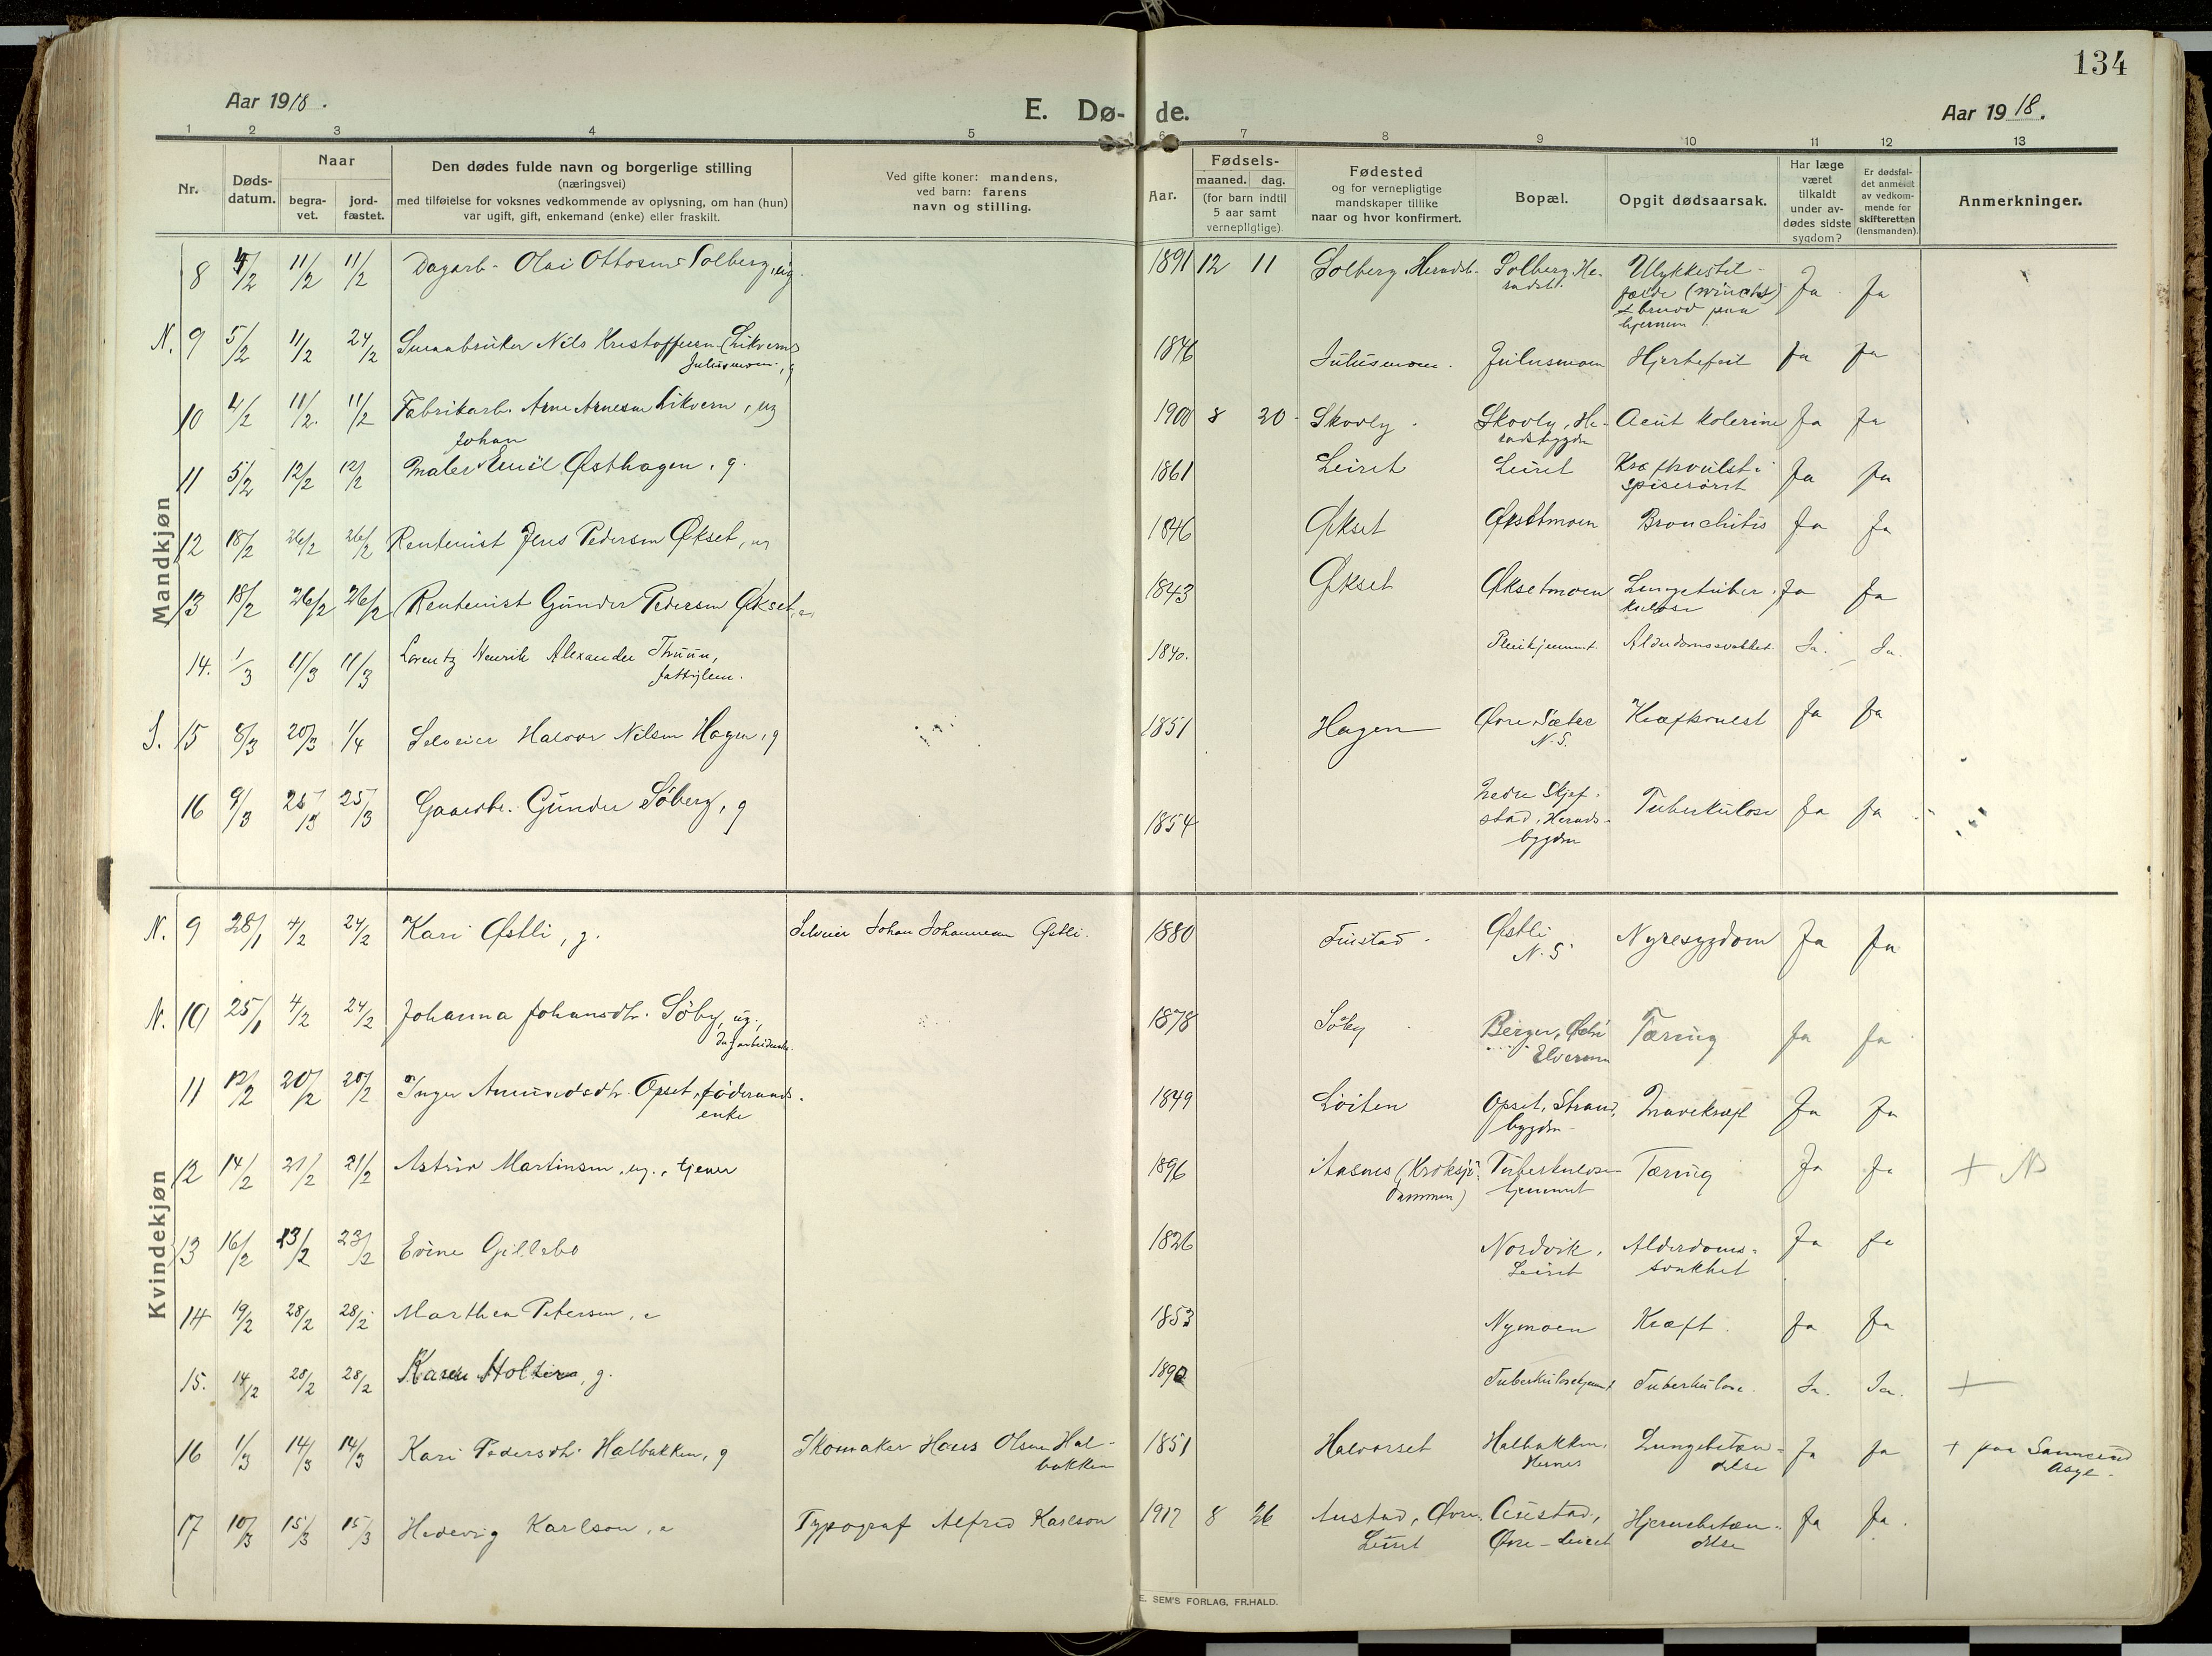 134
Aar 1918.
E. Dø- de.
Aar 1918.
1 2 3 4 5 6 7 8 9 10 11 12 13
Nr.
Døds-
datum.
Naar
begra-
vet.
jord-
fæstet.
Den dødes fulde navn og borgerlige stilling
(næringsvei)
med tilføielse for voksnes vedkommende av oplysning, om han (hun)
var ugift, gift, enkemand (enke) eller fraskilt.
Ved gifte koner: mandens,
ved barn: farens
navn og stilling.
Aar.
Fødsels-
maaned. dag.
(for barn indtil
5 aar samt
vernepligtige)
Fødested
og for vernepligtige
mandskaper tillike
naar og hvor konfirmert.
Bopæl.
Opgit dødsaarsak.
Har læge
været
tilkaldt
under av-
dødes sidste
sygdom?
Er dødsfal-
det anmeldt
av vedkom-
mende for
skifteretten
(lensmanden).
Anmerkninger.
Mandkjøn
8 4/2 11/2 11/2 Dagarb. Olai Ottosen Solberg, ug. 1891 12 11 Solberg, Heradsb. Solberg, He-
radsb. Ulykkestil-
fælde (
hjernen Ja Ja
N. 9 5/2 11/2 24/2 Smaabruker Nils Kristoffersen (Likvern)
Julusmoen, g 1846 Julusmoen. Julusmoen Hjertefeil Ja Ja
10 4/2 11/2 11/2 Fabrikarb. Arne Arnesen Likvern, ug 1900 8 20 Skovly. Skovly, He-
radsbygden Acut kolerine Ja Ja
11 5/2 12/2 12/2 Maler Johan Emil Østhagen, g. 1861 Leiret Leiret Kræftsvulst i
spiserøret Ja Ja
12 18/2 26/2 26/2 Rentenist Jens Pedersen Økset, ug 1846 Økset Øksetmoen Bronchitis Ja Ja
13 18/2 26/2 26/2 Rentenist Gunder Pedersen Økset, e 1843 Økset Øksetmoen Lungetuber-
kulose Ja Ja
14. 1/3 11/3 11/3 Lorentz Henrik Alexander Thuun,
fattiglem. 1840. Pleiehjemmet. Alderdomssvakhet. Ja. Ja.
S. 15 8/3 20/3 1/4 Selveier Halvor Nilsen Hagen, g 1851 Hagen Øvre Sæter
N.S. Kræftsvulst Ja Ja
16 9/3 25/3 25/3 Gaardbr. Gunder Søberg, g 1854 Nedre Skjef-
stad, Herads-
bygden Tuberkulose Ja Ja
Kvindekjøn
N. 9 28/1 4/2 24/2 Kari Østli, g. Selveier Johan Johannesen Østli. 1880 Finstad. Østli
N.S. Nyresygdom Ja Ja
N. 10 25/1 4/2 24/2 Johanna Johansdtr. Søby, ug.,
dagarbeiderske. 1878 Søby Berger,
Elverum Tæring Ja Ja
11 12/2 20/2 20/2 Inger Amundsdtr. Opset, føderaads-
enke 1849 Løiten Opset, Strand-
bygden Mavekræft Ja Ja
12 14/2 21/2 21/2 Astrid Martinsen, ug., tjener 1896 Aasnes (Kroksjø-
dammen) Tuberkulose-
hjemmet Tæring Ja Ja +
13 16/2 23/2 23/2 Evine Gillebo 1826 Nordvik,
Leiret Alderdoms-
svakhet Ja Ja
14 19/2 28/2 28/2 Marthea Petersen, e 1853 Nymoen Kræft. Ja Ja
15. 14/2 28/2 28/2 Karen Holter, g. 1890 Tuberkulosehjemmet Tuberkulose. Ja. Ja. +
16 1/3 14/3 14/3 Kari Pedersdtr. Halbakken, g Skomaker Hans Olsen Hal-
bakken 1851 Halvorset Halbakken,
Hernes Lungebetæn-
delse Ja Ja + paa Sannerud
Asyl.
17 10/3 15/3 15/3 Hedevig Karlson, e Typograf Alfred Karlson 1917 8 26 Austad, Øvre
Leiret Austad,
Øvre-Leiret Hjernebetæn-
delse Ja Ja.
E. SEM'S FORLAG, FR.HALD.